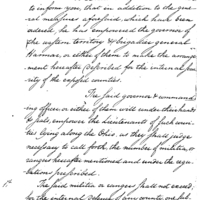 to inform you, that in addition to the gen-
eral measures of defence, which had been
ordered, he has empowered the governor of
the western territory & brigadier general
Harmar, or either of them to make the arrange-
ment hereafter prescribed for the internal secu-
rity of the exposed counties.
The said governor & command-
ing officer, or either of them will under their hands
& seals, empower the lieutenants of such coun-
ties lying along the Ohio, as they shall judge
necessary to call forth, the number of militia, or
rangers hereafter mentioned and under the regu-
lations prescribed.
1st The said militia or rangers shall not exceed,
for the internal defence of any county